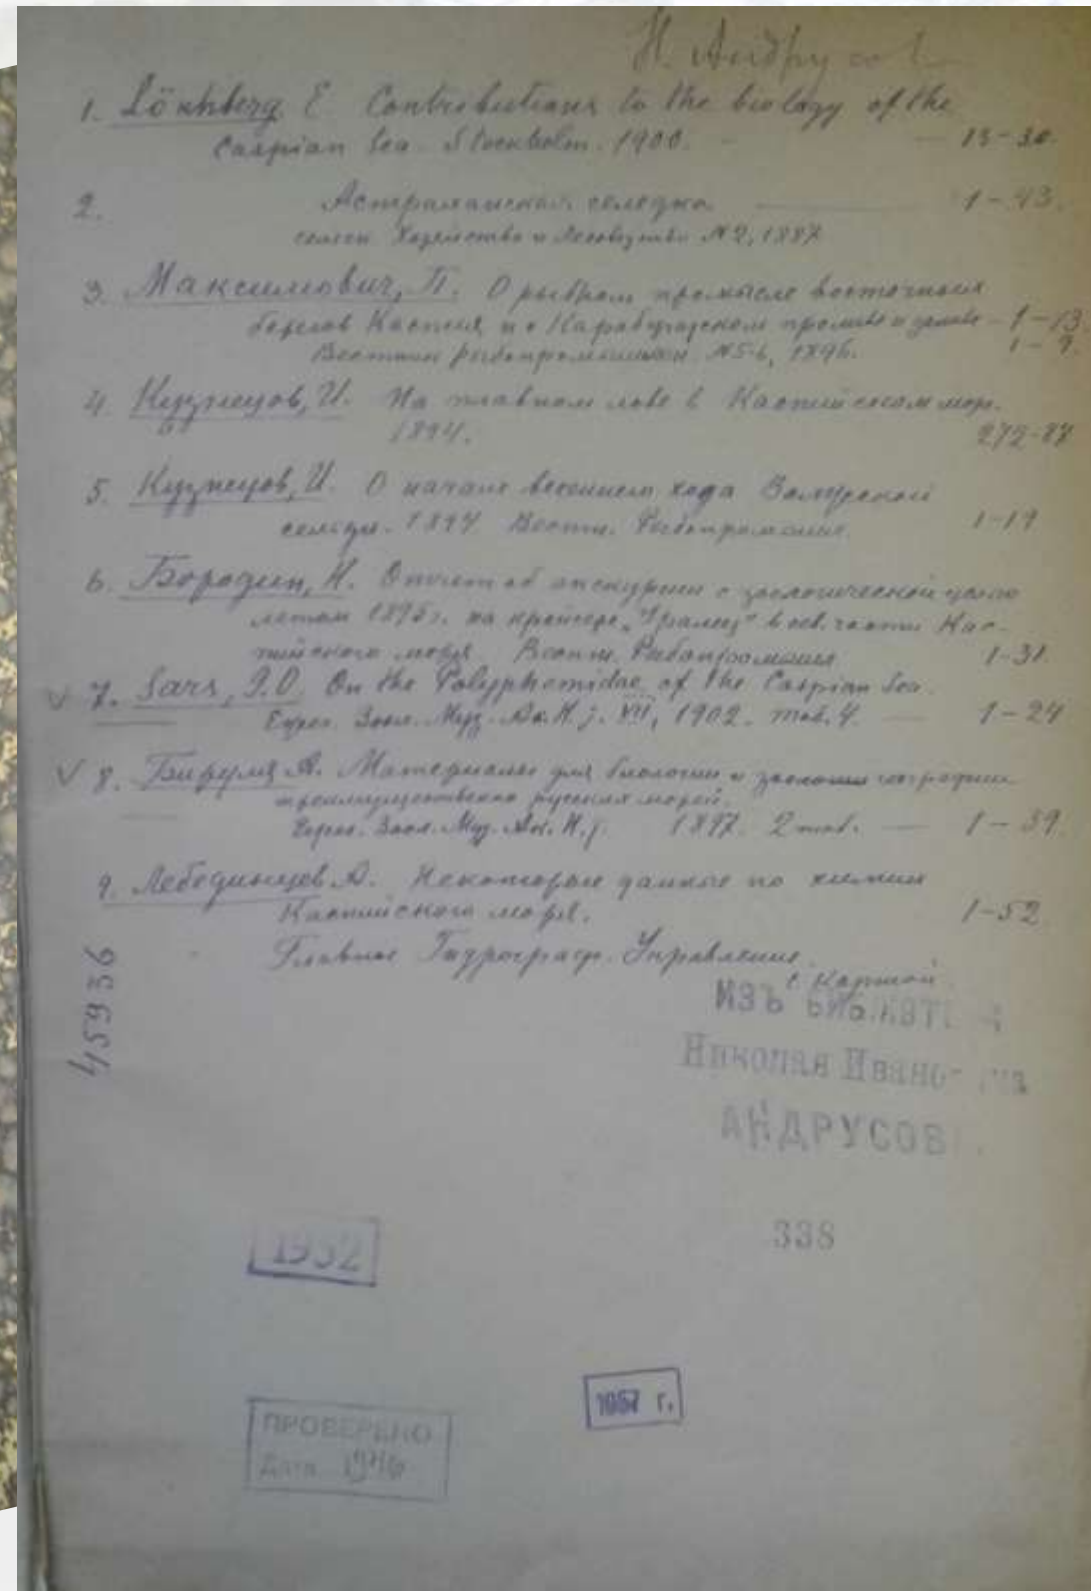 Н. Андрусов
1. Lönnberg E. Contributions to the biology of the
Caspian Sea. Stockholm. 1900. — 13-30.
2. Астраханская селедка — 1-43.
сельск. Хозяйство и Лесоводство №2, 1887
3. Максимович, П. О рыбном промысле восточных
берегов Каспия, и о Карабугазском проливе и заливе — 1-13
Вестник рыбопромышлен. №5-6, 1896. 1-9.
4. Кузнецов, И. На плавном лове в Каспийском мор.
1894. 272-87
5. Кузнецов, И. О начале весеннем хода
сельди. 1894 Вестн. Рыбопромышл. 1-19
6. Бородин, Н. Отчет об экскурсии с зоологической целью
летом 1895г. на крейсере „Уралец" в сев. части Кас-
пийского моря. Вестн. Рыбопромышл 1-31.
V 7. Sars, G.O. On the Polyphemidae of the Caspian Sea.
Ежег. Зоол. Муз. Ак. Н. VII, 1902. таб. 4. — 1-24
V 8. Бируля А. Материалы для биологии и зоогеографии
преимущественно русских морей.
Ежег. Зоол. Муз. Ак. Н. 1897. 2 таб. — 1-39.
9. Лебединцев А. Некоторые данные по химии
Каспийского моря. 1-52
Главное Гидрограф. Управление.
с картой.
45936
ИЗЪ
Николая
АНДРУСОВ
338
1932
1957 г.
ПРОВЕРЕНО
Дата